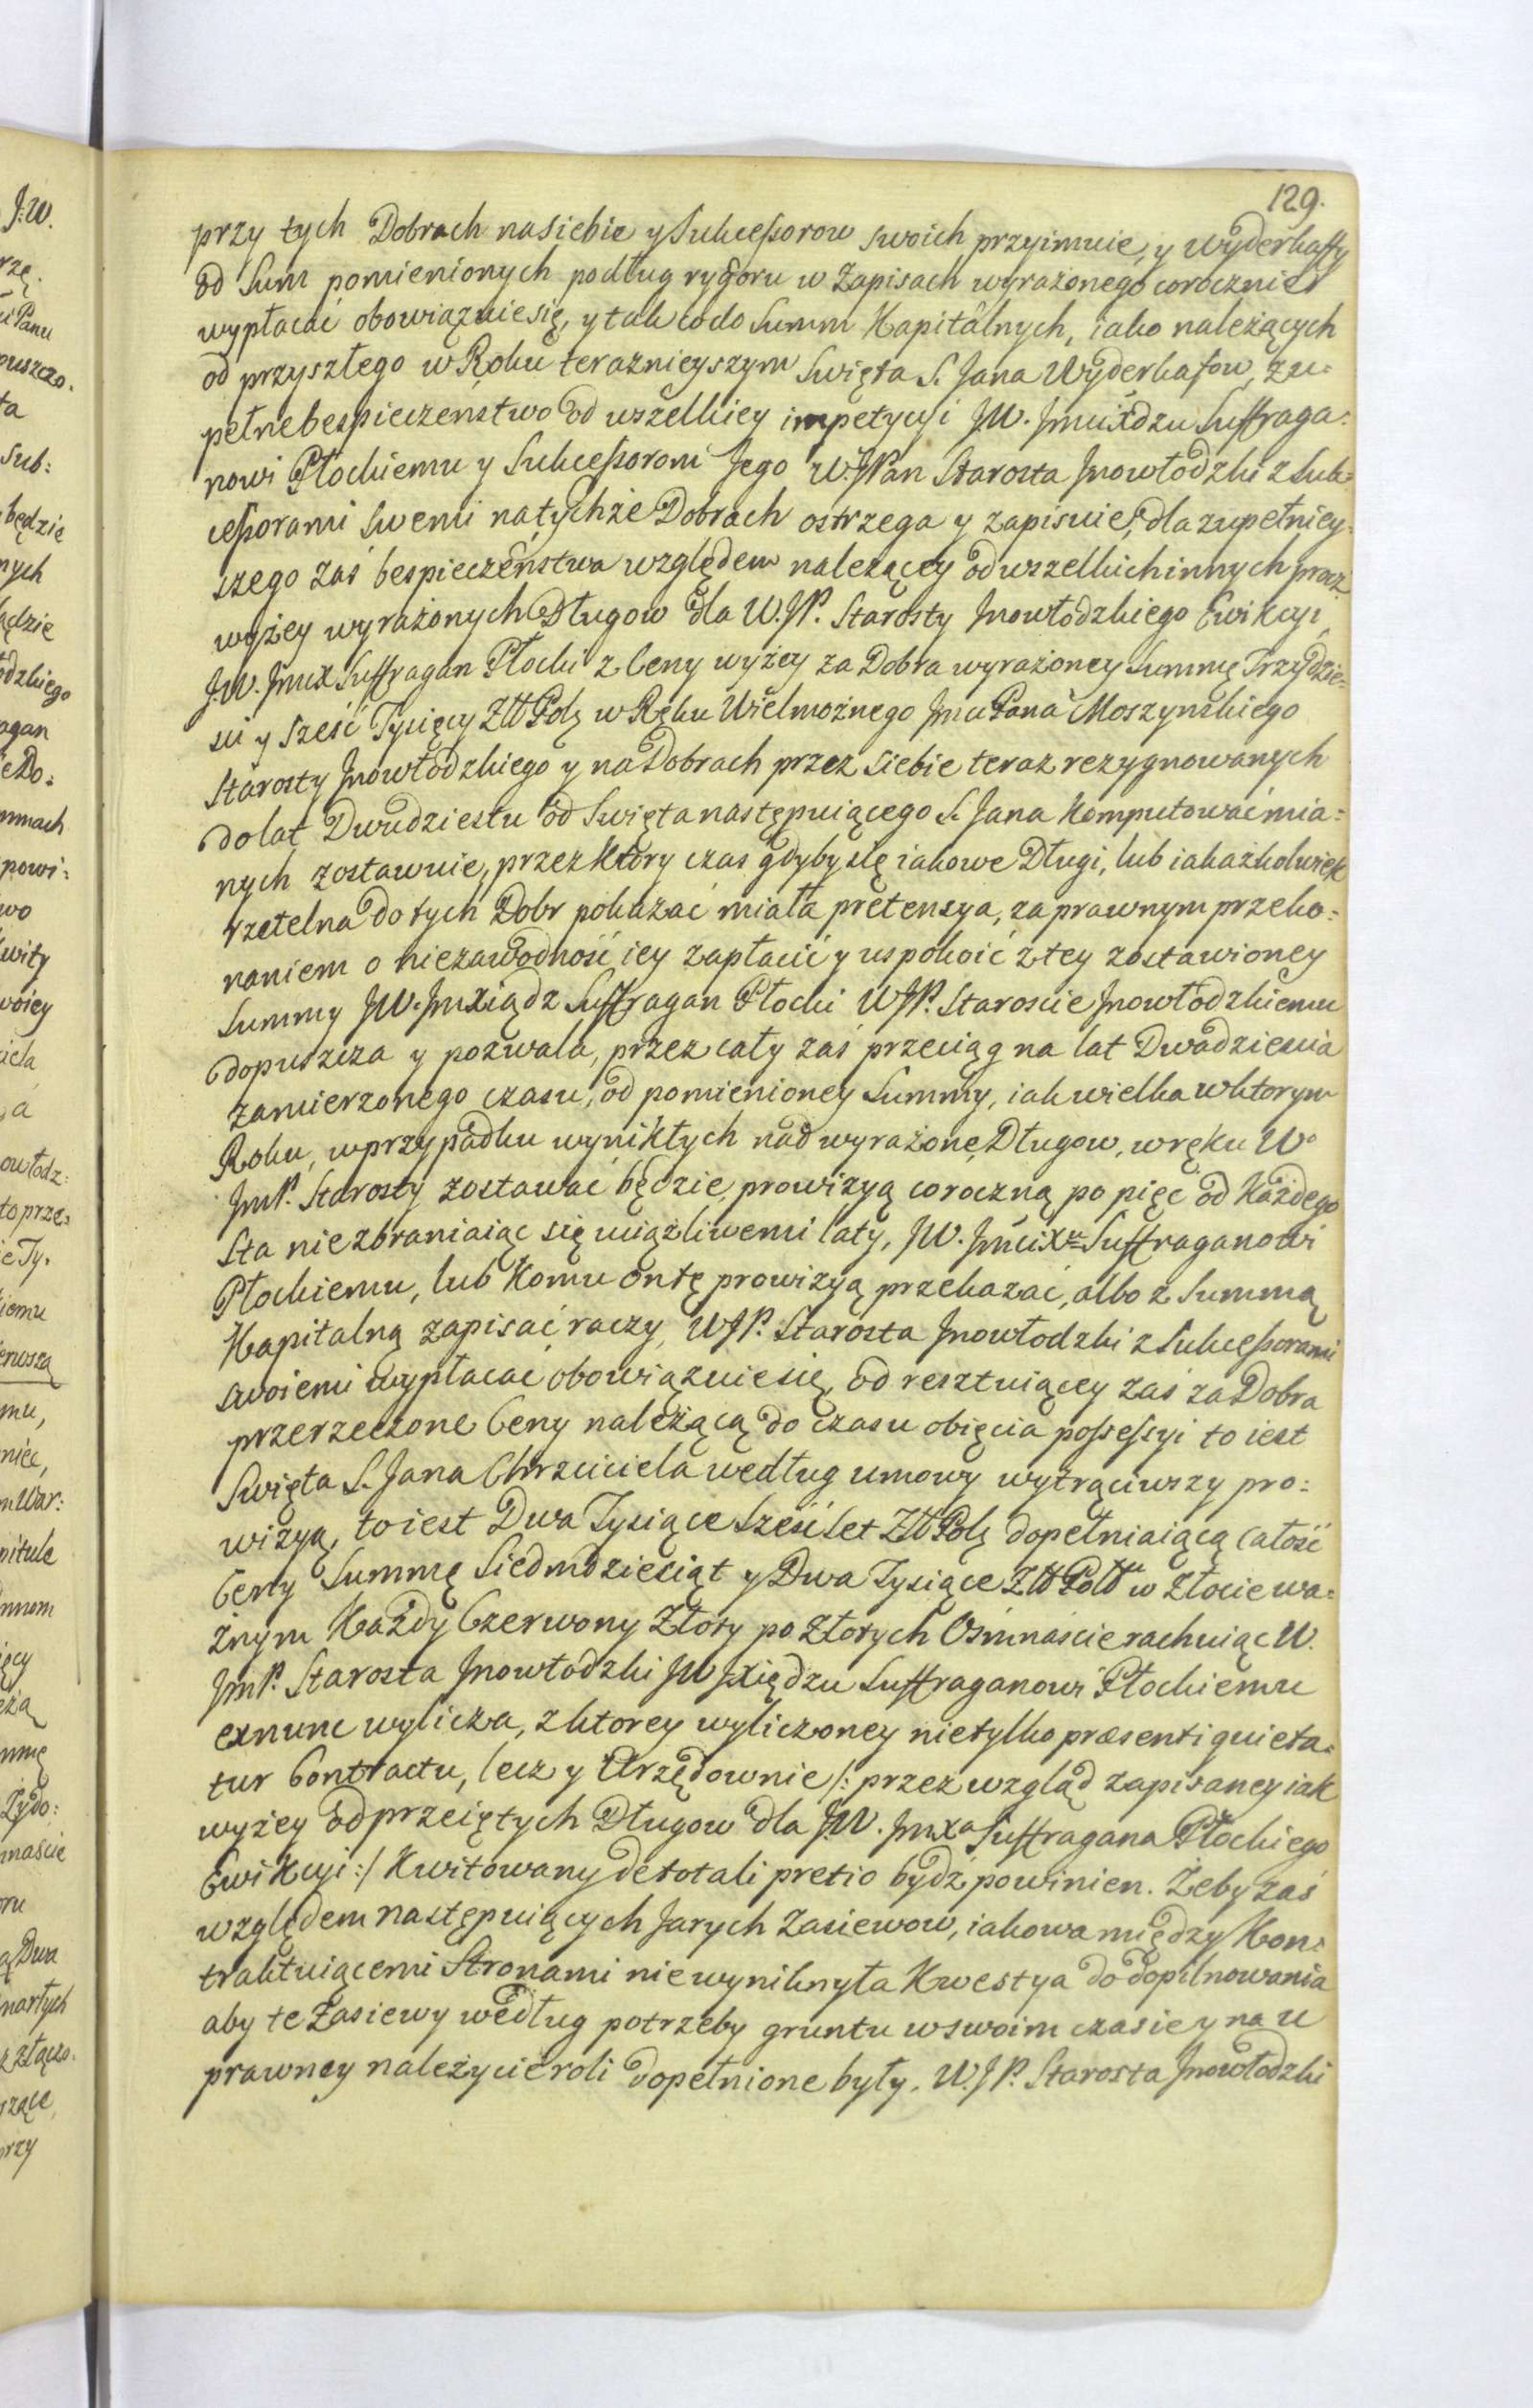 129.
przy tych Dobrach na siebie y Sukcessorow swoich przyimuie, y Wyderkaffy
od Sum pomienionych podług rygoru w Zapisach wyrażonego corocznie
wypłacać obowiązuie się, y tak co do Summ Kapitalnych, iako należących
od przyszłego w Roku teraznieyszym Swięta S. Jana Wyderkafow, zu=
pełne bespieczeństwo od wszelkiey impetycyi JW. Jmcixdzu Suffraga=
nowi Płockiemu y Sukcessorom Jego W. JPan Starosta Jnowłodzki z Suk=
cessorami swemi na tychże Dobrach ostrzega y zapisuie; dla zupełniey=
szego zaś bespieczeństwa względem należącey od wszelkich innych procz
wyżey wyrażonych Długow dla W. JP. Starosty Jnowłodzkiego Ewikcyi,
J.W. Jmcix Suffragan Płocki z Ceny wyżey za Dobra wyrażoney Summę Trzydzie=
sci y sześć Tysięcy Złł Pols w Ręku Wielmożnego Jmci Pana Moszynskiego
Starosty Jnowłodzkiego y na Dobrach przez siebie teraz rezygnowanych
do lat Dwudziestu od Swięta następuiącego S. Jana Komputować mia=
nych zostawuie, przez Ktory czas gdyby się iakowe Długi, lub iakażkolwiek
rzetelna do tych Dobr pokazać miała pretensya, za prawnym przeko=
naniem o niezawodność iey zapłacić y uspokoić z tey zostawioney
Summy JW. Jmxiądz Suffragan Płocki WJP. Staroscie Jnowłodzkiemu
dopuszcza y pozwala, przez cały zaś przeciąg na lat Dwadziescia
zamierzonego czasu, od pomienioney Summy, iak wielka w ktorym
Roku, w przypadku wynikłych nad wyrażone Długow, w ręku W
JmP. Starosty zostawać będzie, prowizyą coroczną po pięć od Każdego
Sta niezbraniaiąc się uciążliwemi laty, JW. Jmcixu Suffraganowi
Płockiemu, lub Komu on tę prowizyą przekazać, albo z Summą
Kapitalną zapisać raczy, WJP. Starosta Jnowłodzki z Sukcessorami
swoiemi wypłacać obowiązuie się, od resztuiącey zaś za Dobra
przerzeczone Ceny należącą do czasu obięcia possessyi to iest
Swięta S. Jana Chrzciciela według umowy wytrąciwszy pro=
wizyą, to iest Dwa Tysiące Sześćset Złł Pols dopełniaiącą całość
Ceny Summę Siedmdziesiąt y Dwa Tysiące Złł Polł w Złocie wa=
żnym Każdy Czerwony Złoty po Złotych Osmnaście rachuiąc W.
JmP. Starosta Jnowłodzki JW Jxiędzu Suffraganowi Płockiemu
exnunc wylicza, z ktorey wyliczoney nietylko præsenti quieta=
tur Contractu, lecz y Urzędownie /: przez wzgląd zapisaney iak
wyżey od przeiętych Długow dla JW. Jmxa Suffragana Płockiego
Ewikcyi :/ Kwitowany de totali pretio bydź powinien. Żeby zaś
względem następuiących Jarych Zasiewow, iakowa między Kon=
traktuiącemi Stronami nie wyniknyła Kwestya do dopilnowania
aby te Zasiewy według potrzeby gruntu w swoim czasie y na u
prawney należycie roli dopełnione były. W. JP. Starosta Jnowłodzki